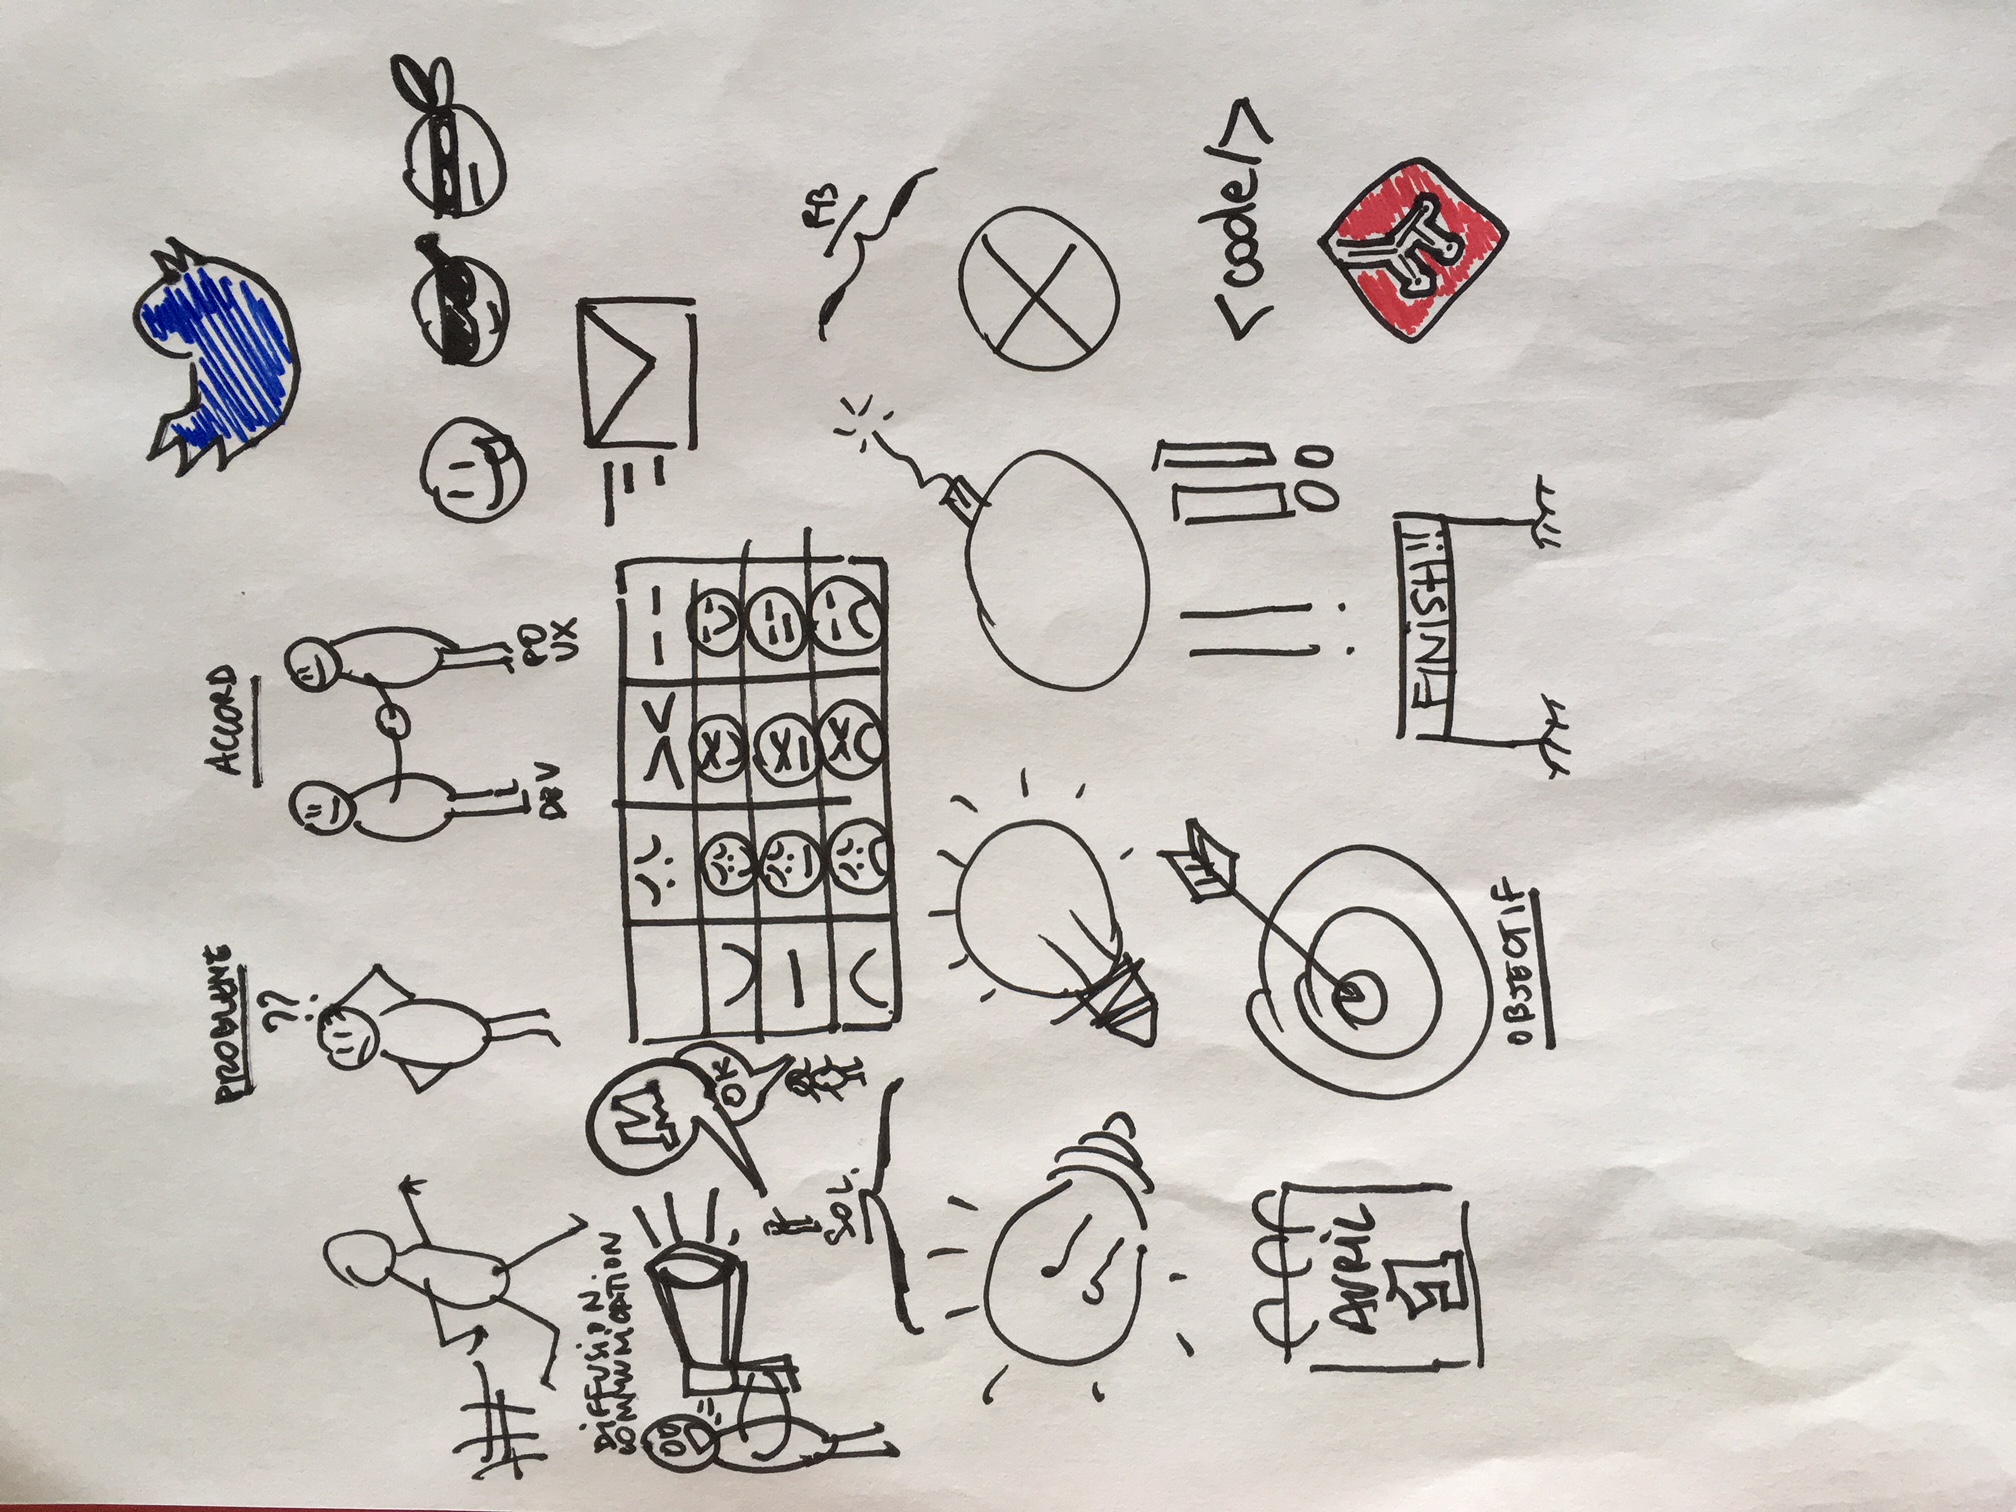 PROBLEME
??
ACCORD
DEV
PO
UX
DIFFUSION.
COMMUNICATION
M
OK
SOL.
PB
!!
!!
<code/>
AVRIL
1
FINISH!!
OBJECTIF